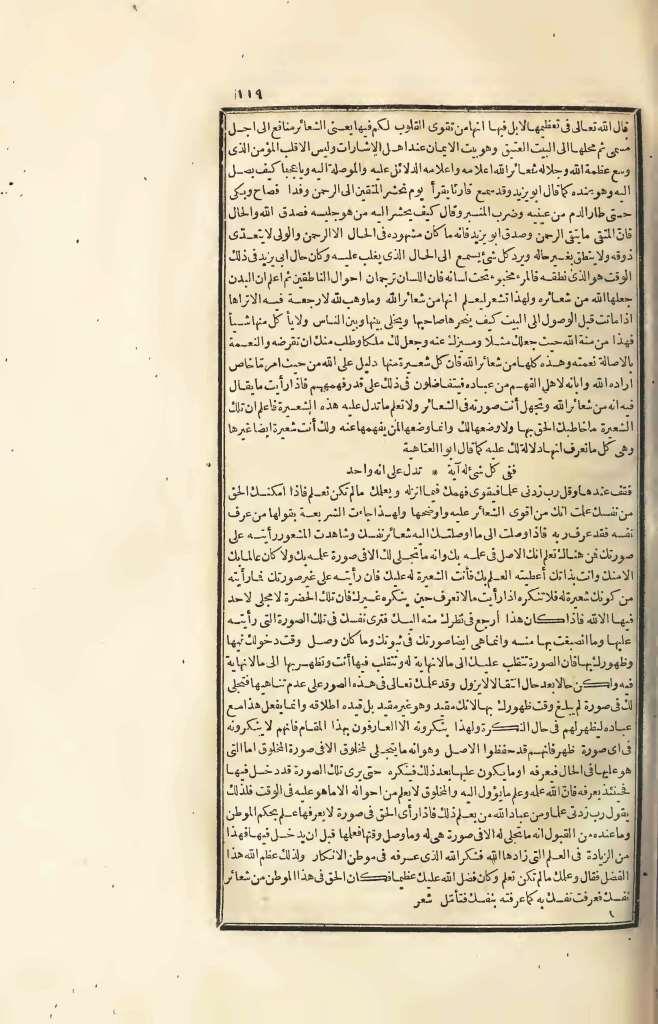 ١١٩
قال الله تعالى فى تعظيمها لابل فيها انها من تقوى القلوب لكم فيها يعنى الشعائر منافع الى اجل
مسمى ثم محلها الى البيت العتيق وهو بيت الايمان عند اهل الاشارات وليس الاقلب المؤمن الذى
وسع عظمة الله وجلاله شعائر الله اعلامه واعلامه الدلائل عليه والموصلة اليه ويا عجبا كيف يصل
اليه وهو عنده كما قال ابو يزيد وقد سمع قارئا يقرأ يوم نحشر المتقين الى الرحمن وفدا فصاح وبكى
حتى طار الدم من عينيه وضرب المنبر وقال كيف يحشر اليه من هو جليسه فصدق الله والحال
فان المتقى مايتقى الرحمن وصدق ابو يزيد فانه ما كان مشهوده فى الحال الا الرحمن والولى لا يتعدى
ذوقه ولا ينطق بغير حاله ويرد كل شئ يسمع الى الحال الذى يغلب عليه وكان حال ابى يزيد فى ذلك
الوقت هو الذى نطق به فالمرء مخبوء تحت لسانه فان اللسان ترجمان احوال الناطقين ثم اعلم ان البدن
جعلها الله من شعائره ولهذا تشعر ليعلم انها من شعائر الله وما وهب لله لا رجعة فيه الا تراها
اذا ماتت قبل الوصول الى البيت كيف ينحرها صاحبها ويخلى بينها وبين الناس ولا يأكل منها شيأ
فهذا من منة الله حيث جعلك مثلا وميزك عنه وجعل لك ملكا وطلب منك ان تقرضه والنعمة
بالاصالة نعمته وهذه كلها من شعائر الله فان كل شعيرة منها دليل على الله من حيث امر ما خاص
اراده الله وابانه لاهل الفهم من عباده فيتفاضلون فى ذلك على قدر فهمهم فاذا رأيت ما يقال
فيه انه من شعائر الله وتجهل أنت صورته فى الشعائر ولا تعلم ما تدل عليه هذه الشعيرة فاعلم ان تلك
الشعيرة ما خاطبك الحق بها ولا وضعها لك وانما وضعها لمن يفهمها عنه ولك أنت شعيرة ايضا غيرها
وهى كل ما تعرف انها دلالة لك عليه كما قال ابو العتاهية
ففى كل شئ له آية * تدل على انه واحد
فقف عندها وقل رب زدنى علما فيقوى فهمك فيما انزله ويعلمك مالم تكن تعلم فاذا امكنك الحق
من نفسك علمت انك من اقوى الشعائر عليه واوضحها ولهذا جاءت الشريعة بقولها من عرف
نفسه فقد عرف ربه فاذا وصلت الى ما اوصلتك اليه شعائر نفسك وشاهدت المشعور رأيته على
صورتك فمن هناك تعلم انك الاصل فى علمه بك وانه ما يتجلى لك الا فى صورة علمه بك ولا كان عالما بك
الا منك وانت بذاتك أعطيته العلم بك فأنت الشعيرة له عليك فان رأيته على غير صورتك فما رأيته
من كونك شعيرة له فلا تنكره اذا رأيت ما لا تعرف حين ينكره غيرك فان تلك الحضرة لا مجلى لاحد
فيها الا لله فاذا كان هذا أرجع فى نظرك منه اليك فترى نفسك فى تلك الصورة التى رأيته
عليها وما انصبغت بها منه وانما هى ايضا صورتك فى ثبوتك وما كان وصل وقت دخولك فيها
وظهورك بها فان الصورة تتقلب عليك الى مالا نهاية له وتتقلب فيها أنت وتظهر بها الى مالا نهاية
فيه ولكن حالا بعد حال انتقالا لا يزول وقد علمك تعالى فى هذه الصور على عدم تناهيها فتجلى
لك فى صورة لم يبلغ وقت ظهورك بها لانك مقيد وهو غير مقيد بل قيده اطلاقه وانما يفعل هذا مع
عباده ليظهر لهم فى حال النكرة ولهذا ينكرونه الا العارفون بهذا المقام فانهم لا ينكرونه
فى اى صورة ظهر فانهم قد حفظوا الاصل وهو انه ما يتجلى لمخلوق الا فى صورة المخلوق اما التى
هو عليها فى الحال فيعرفه او ما يكون عليها بعد ذلك فينكره حتى يرى تلك الصورة قد دخل فيها
فحينئذ يعرفه فان الله علمه وعلم ما يؤول اليه والمخلوق لا يعلم من احواله الا ما هو عليه فى الوقت فلذلك
يقول رب زدنى علما ومن عباد الله من يعلم ذلك فاذا رأى الحق فى صورة لا يعرفها علم بحكم الموطن
وما عنده من القبول انه ما تجلى له الا فى صورة هى له وما وصل وقتها فعلمها قبل ان يدخل فيها فهذا
من الزيادة فى العلم التى زادها الله فشكر الله الذى عرفه فى موطن الانكار ولذلك عظم الله هذا
الفضل فقال وعلمك مالم تكن تعلم وكان فضل الله عليك عظيما فكان الحق فى هذا الموطن من شعائر
نفسك فعرفت نفسك به كما عرفته بنفسك فتأمل شعر